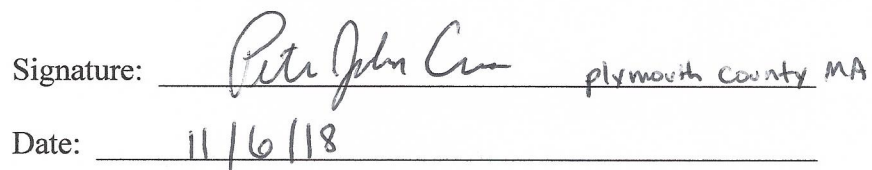 Signature: John plymouth county MA
Date: 11/6/18